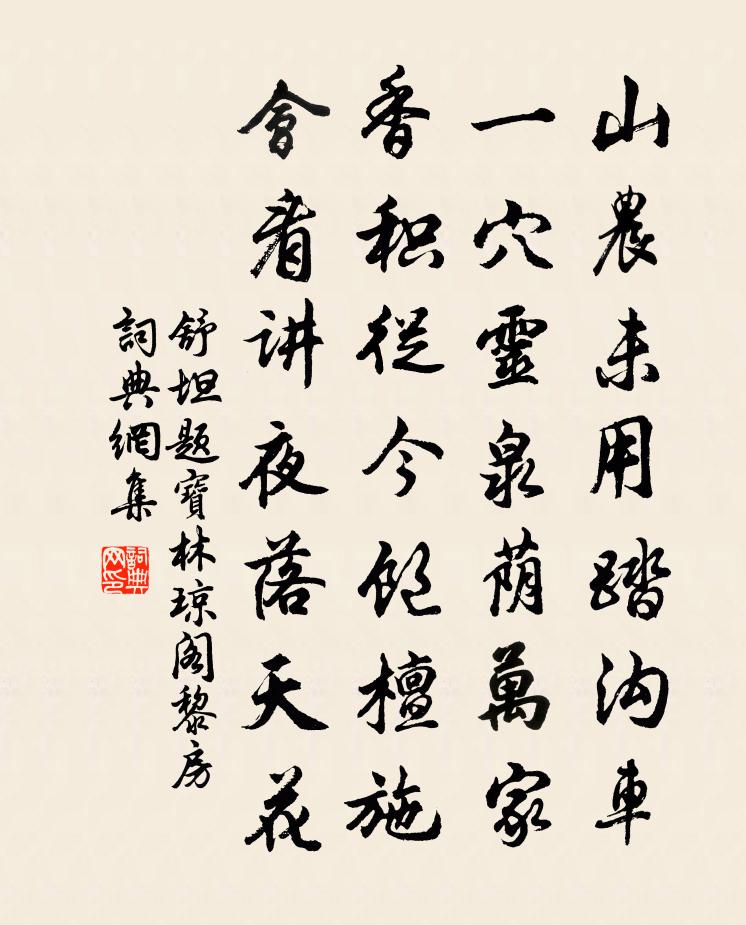 山農未用踏沟車
一穴靈泉荫萬家
香积從今飽檀施
會看讲夜落天花
舒坦题寶林琼阁黎房
詞典網集
詞典网印